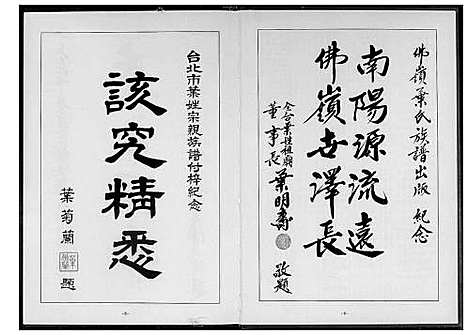 佛嶺葉氏族譜出版 紀念
南陽源流遠
佛嶺世澤長
全台葉姓祖廟
董事長 葉明壽 敬題
台北市葉姓宗親族譜付梓紀念
該究精悉
葛菊蘭 題